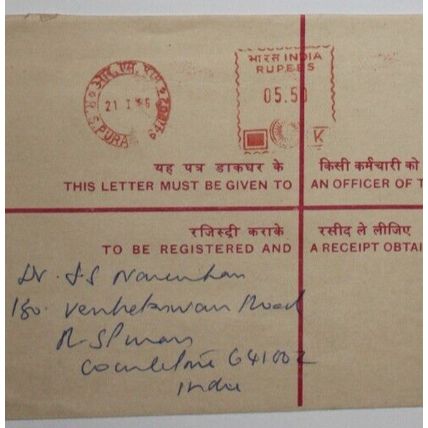 भारत INDIA
RUPEES
05.50
K
21 I
R.S. PURA
यह पत्र डाकघर के किसी कर्मचारी को
THIS LETTER MUST BE GIVEN TO AN OFFICER OF T
रजिस्ट्री कराके रसीद ले लीजिए
TO BE REGISTERED AND A RECEIPT OBTAI
Dr. S.S
180. Road
R.S Puram
641002
India